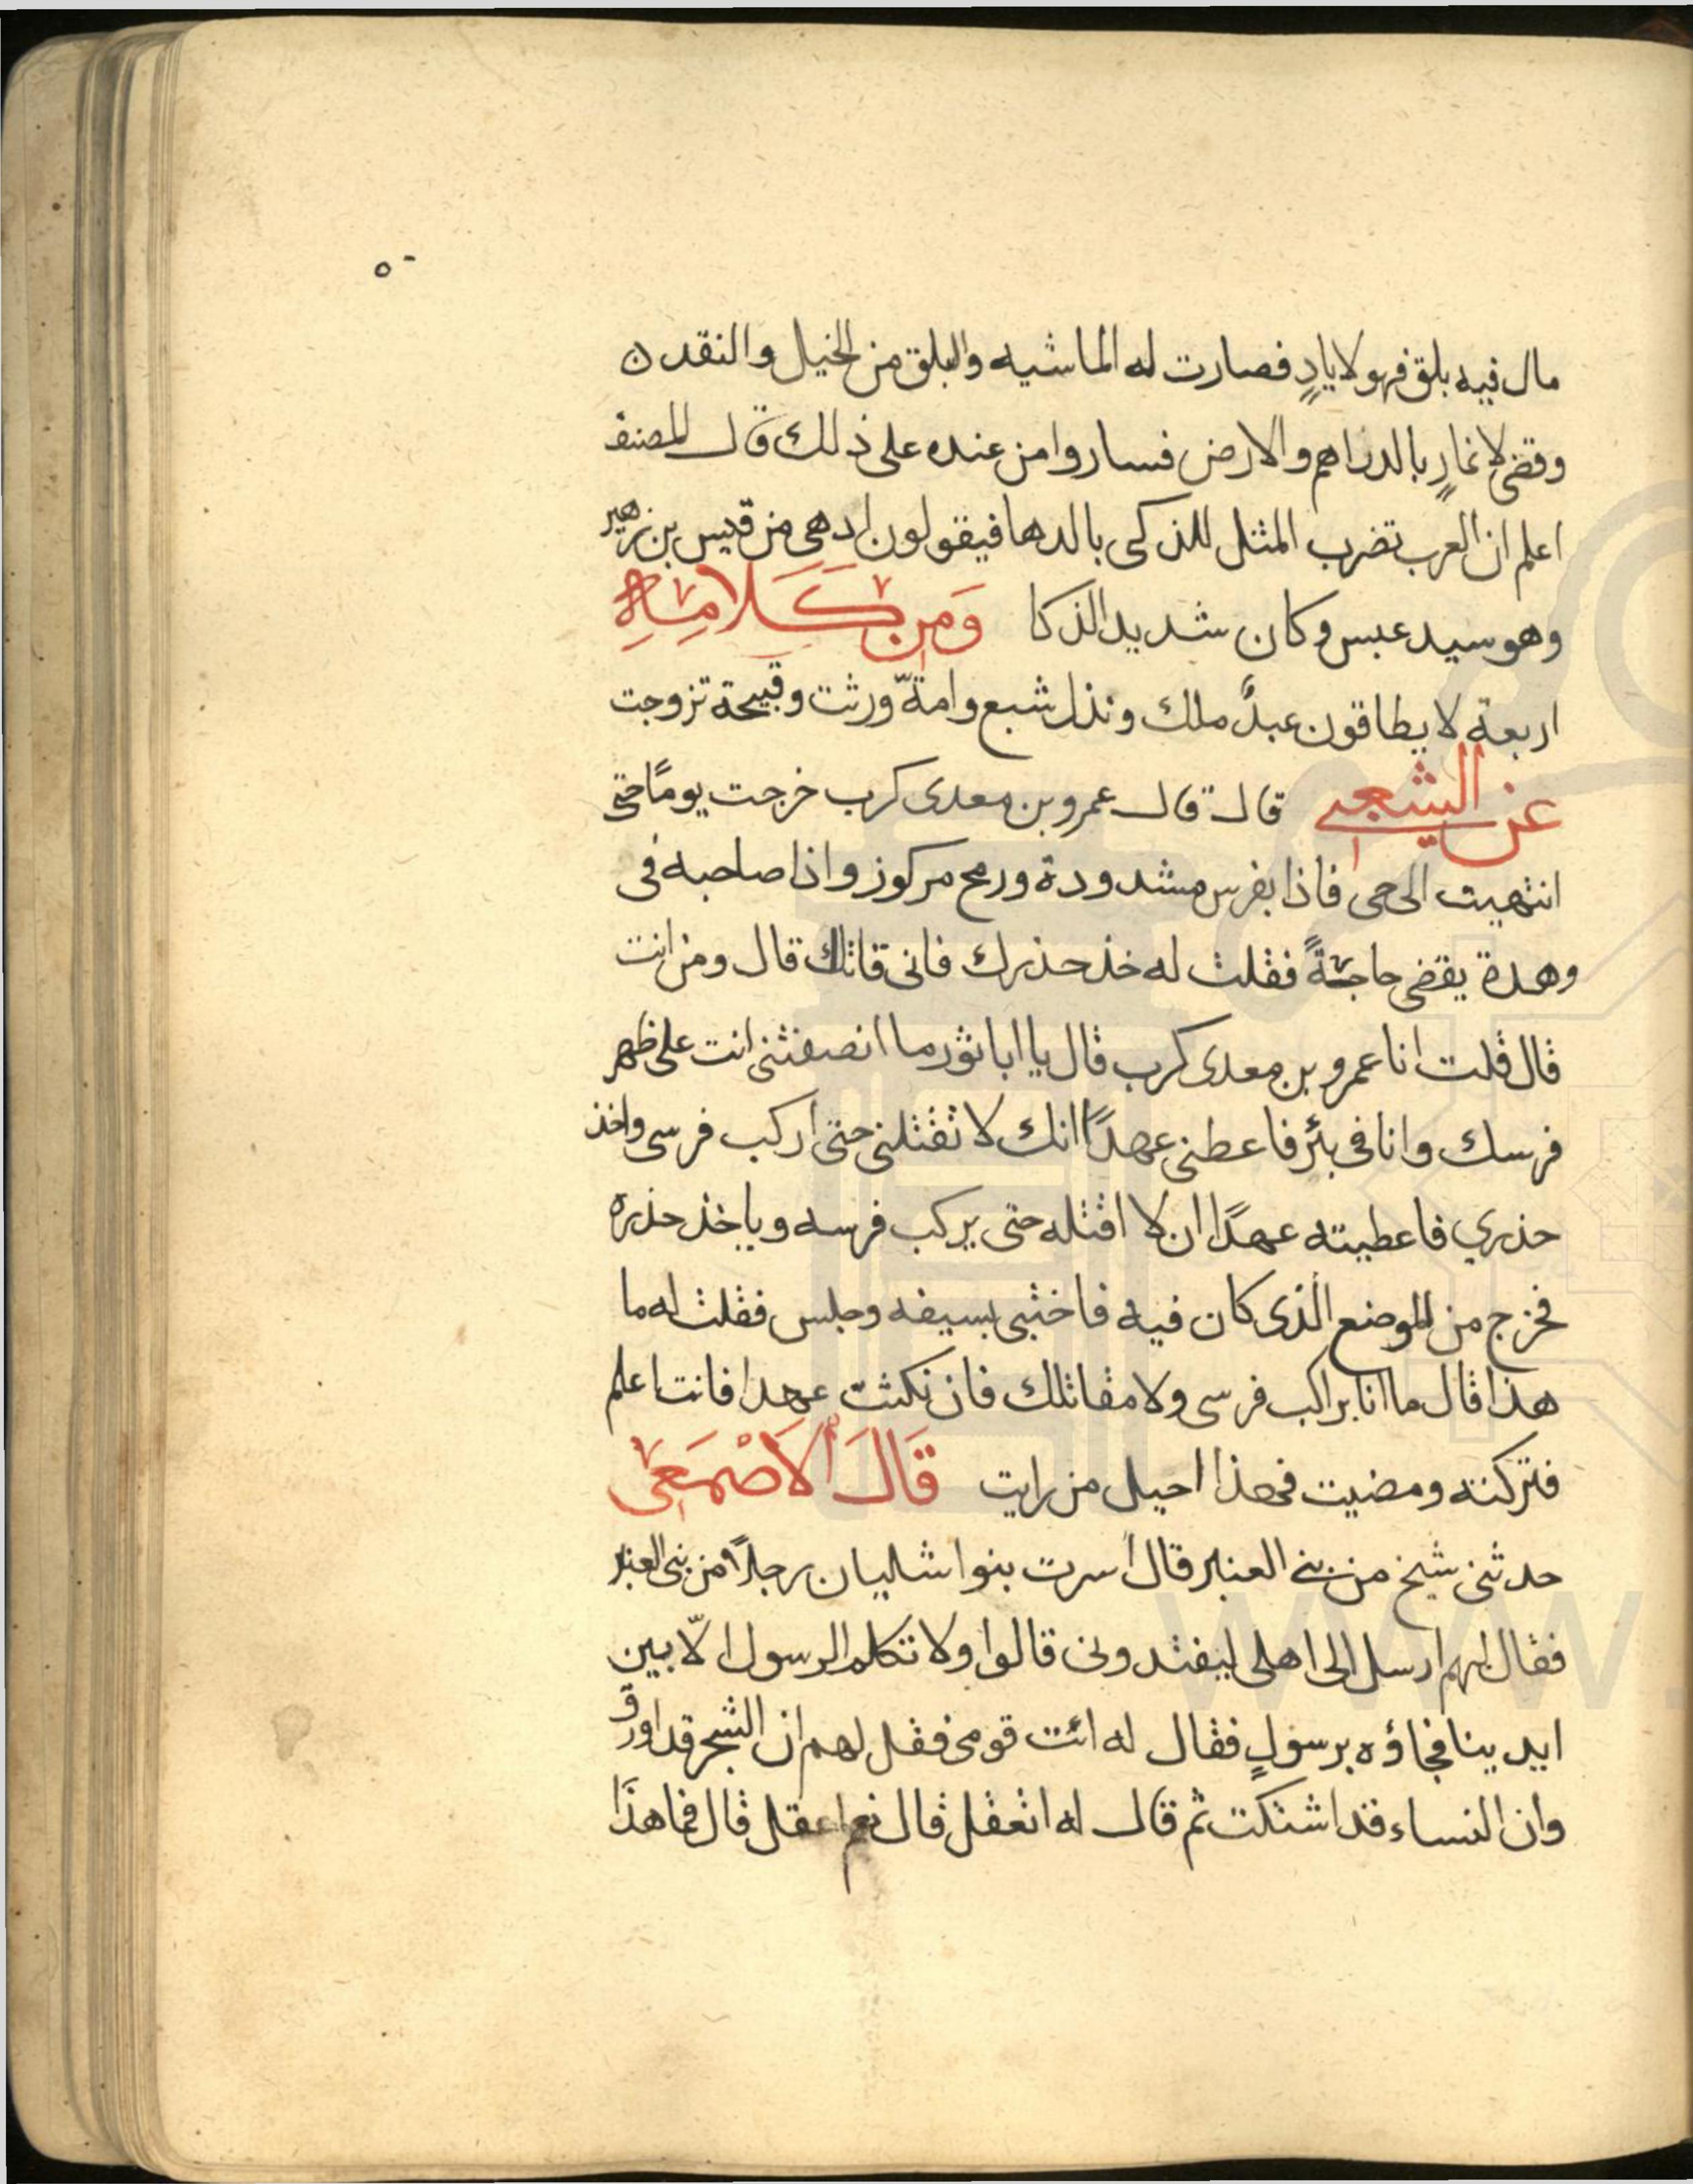 ٥٠
مال فيه بلق فهو لايادٍ فصارت له الماشيه والبلق من الخيل والنقد ن
وقضى لانمارٍ بالدراهم والارض فساروا من عنده على ذلك قال المصنف
اعلم ان العرب تضرب المثل للذكى بالدها فيقولون ادهى من قيس بن زهير
وهو سيد عبس وكان شديد الذكا وَمِن كَلَامِهِ
اربعة لا يطاقون عبدٌ ملك ونذل شبع وامةّ ورثت وقبيحة تزوجت
عن الشعبي قال قال عمرو بن معدى كرب خرجت يومًا حتى
انتهيت الى حى فاذا بفرس مشدودة ورمح مركوز واذا صاحبه فى
وهدة يقضى حاجةً فقلت له خذ حذرك فانى قاتلك قال ومن انت
قال قلت انا عمرو بن معدى كرب قال يا ابا ثور ما انصفتنى انت على ظهر
فرسك وانا فى بئر فاعطنى عهدًا انك لا تقتلنى حتى اركب فرسى واخذ
حذري فاعطيته عهدًا ان لا اقتله حتى يركب فرسه وياخذ حذره
فخرج من الموضع الذى كان فيه فاختبى بسيفه وجلس فقلت له ما
هذا قال ما انا براكب فرسى ولا مقاتلك فان نكثت عهدا فانت اعلم
فتركته ومضيت فهذا احيل من رايت قَالَ اَلاَصْمَعَى
حدثنى شيخ من بنى العنبر قال اسرت بنوا شليبان رجلاً من بنى العنبر
فقال لهم ارسل الى اهلى ليفتدونى قالوا ولا تكلم الرسول الّا بين
ايدينا فجاؤه برسولٍ فقال له ائت قومى فقل لهم ان الشجر قد اورق
وان النساء قد اشتكت ثم قال له اتعقل قال نعم اعقل قال فما هذا